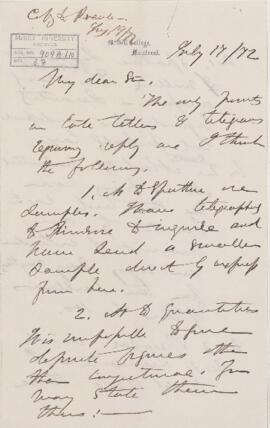 McGill College,
Montreal.
McGILL UNIVERSITY
ARCHIVES
ACC. NO. 909A/10
REF. 27
July 17/72
My dear Sir.
The only points
in late letters & telegrams
requiring reply are I think
the following.
1. As to Apatite ore
Samples. Have telegraphed
to to inquire and
have send a smaller
Sample directly by express
from here.
2. As to quantities
It is impossible to give
definite figures other
than conjectural. You
may state them
thus: —